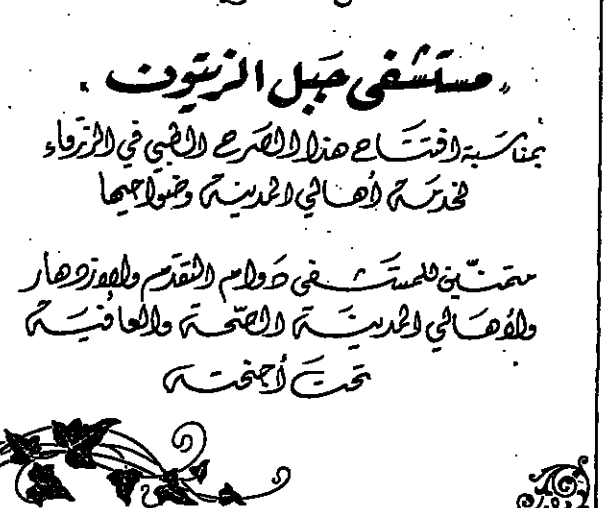 " مستشفى جبل الزيتون "
بمناسبة افتتاح هذا الصرح الطبي في الزرقاء
لخدمة أهالي المدينة وضواحيها
متمنّين للمستشفى دوام التقدم والازدهار
ولأهالي المدينة الصّحة والعافية
تحت أجنحته